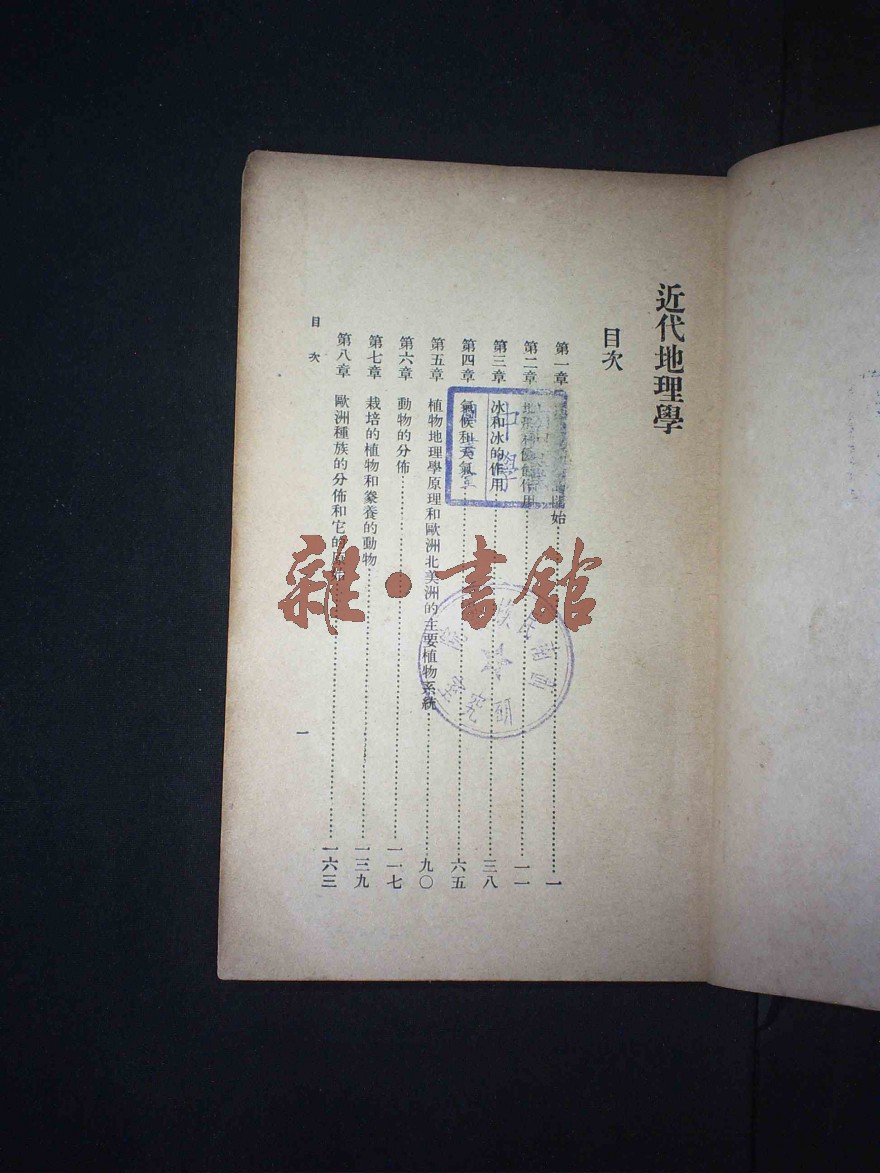 近代地理學
目次
第一章 開始……一
第二章 地形和侵蝕作用……一一
第三章 冰和冰的作用……三八
第四章 氣候和天氣……六五
第五章 植物地理學原理和歐洲北美洲的主要植物系統……九〇
第六章 動物的分佈……一一七
第七章 栽培的植物和豢養的動物……一三九
第八章 歐洲種族的分佈和它的……一六三
目次
一
中學
雜·書館